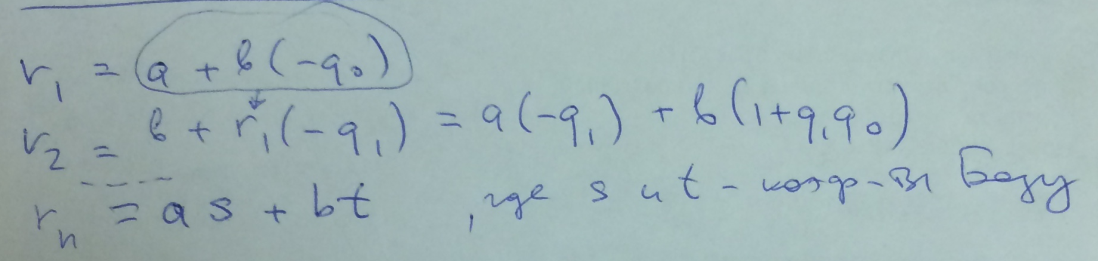 r₁ = a + b(-q₀)
r₂ = b + r₁(-q₁) = a(-q₁) + b(1+q₁q₀)
rₙ = as + bt , где s и t - коэф-ты Безу